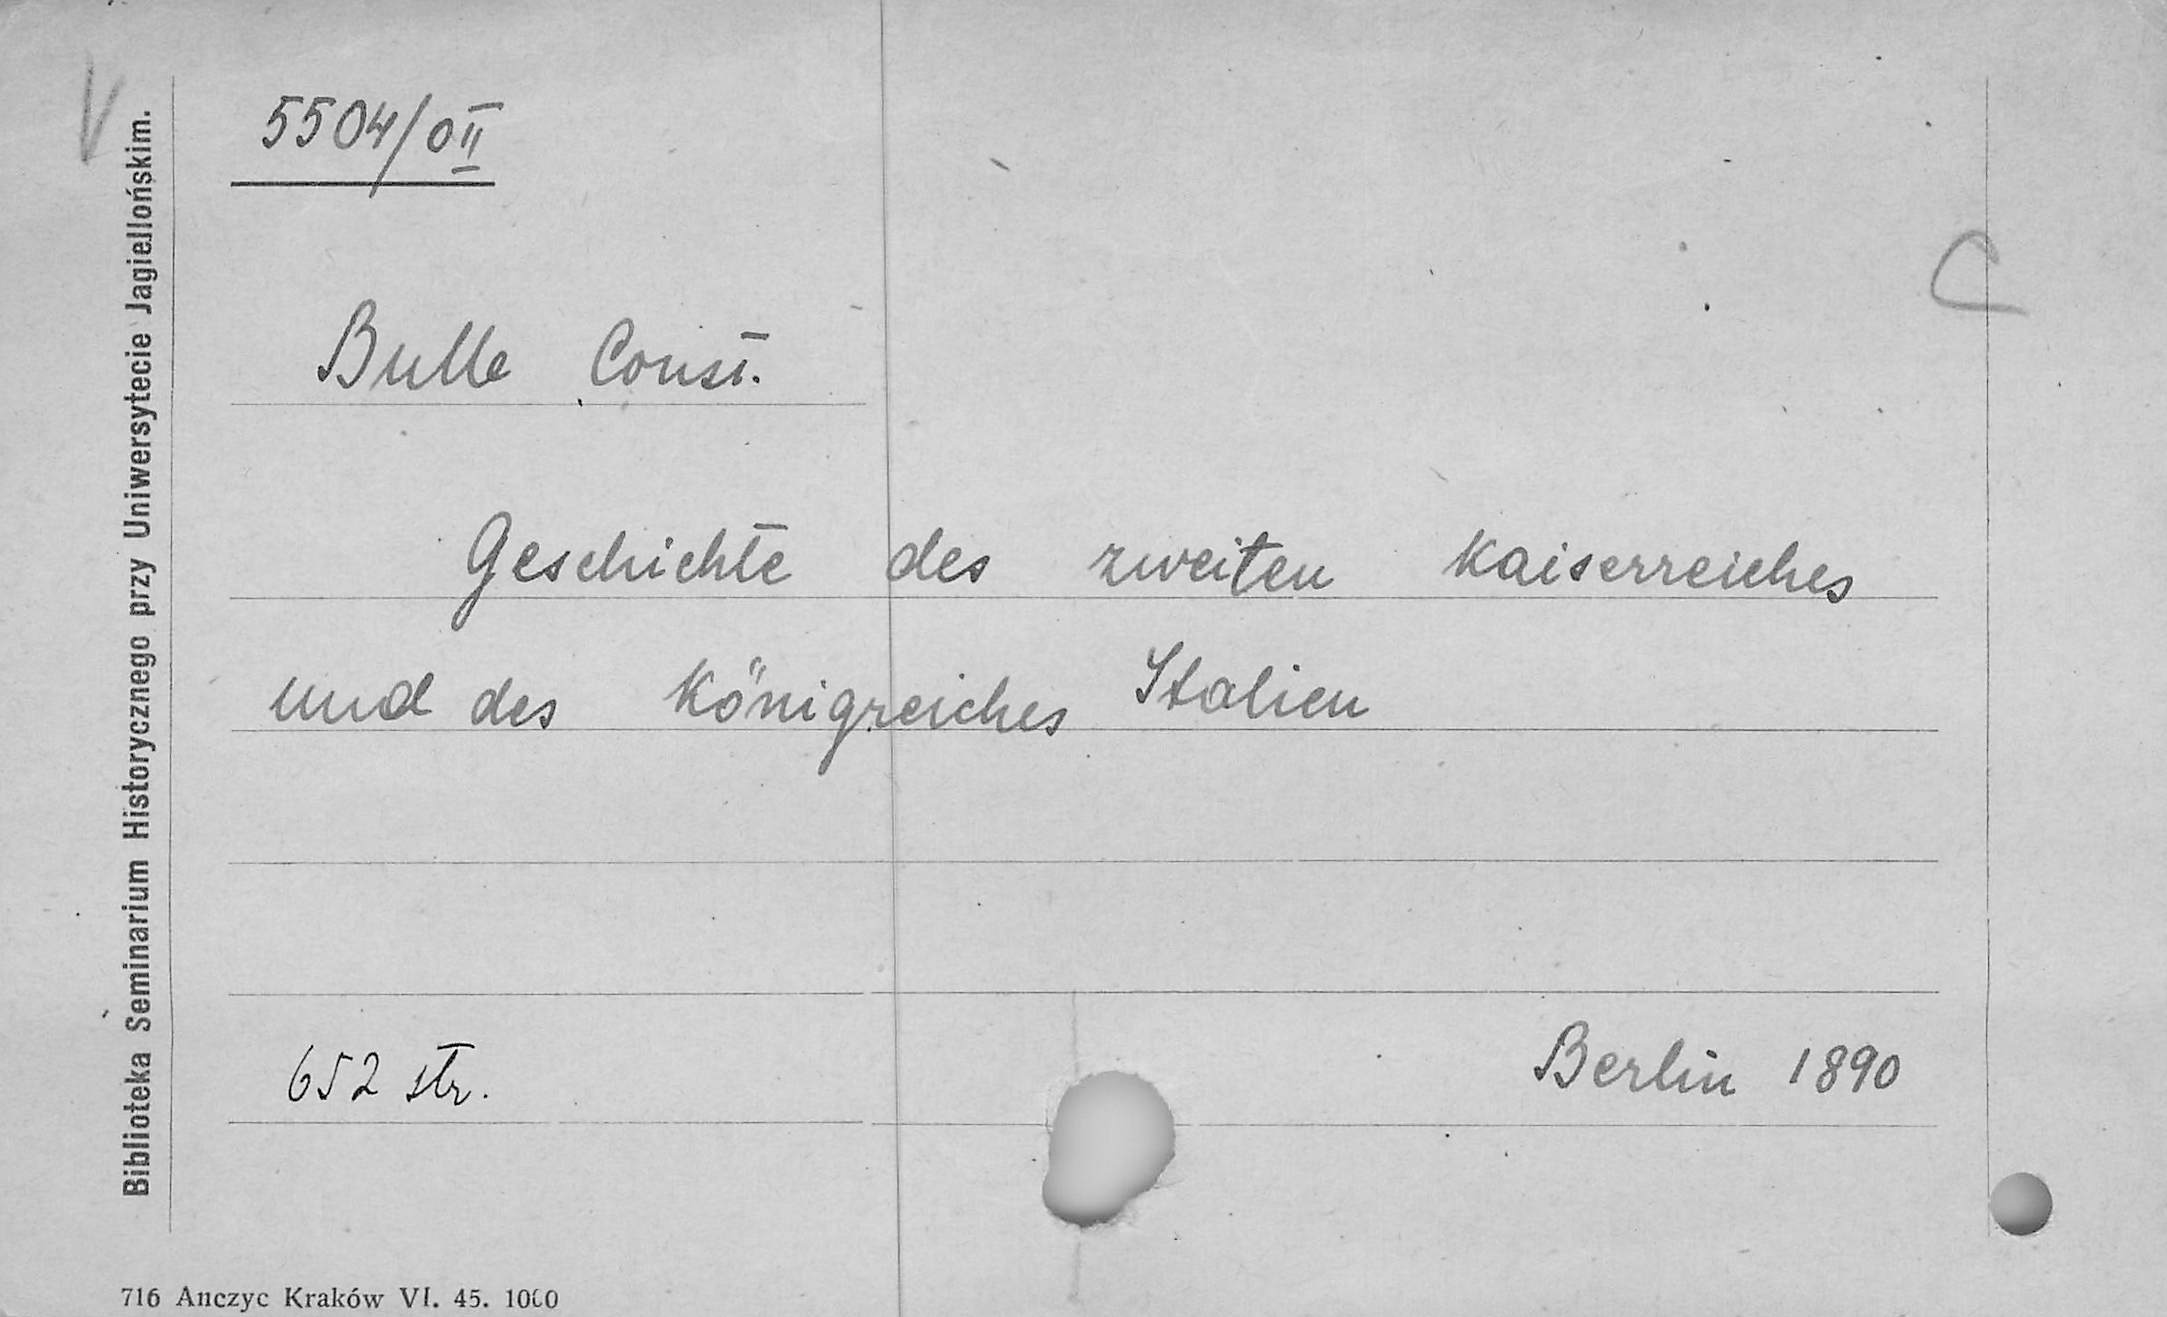 V
5504/0II
C
Bulle Const.
Geschichte des zweiten Kaiserreiches
und des Königreiches Italien
652 str.
Berlin 1890
Biblioteka Seminarium Historycznego przy Uniwersytecie Jagiellońskim.
716 Anczyc Kraków VI. 45. 1000